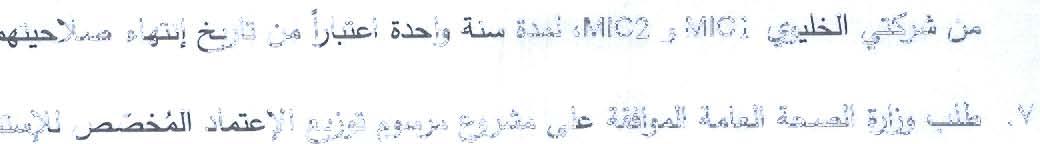 من شركتي الخليوي MIC1 و MIC2، لمدة سنة واحدة اعتباراً من تاريخ إنتهاء صلاحيتهم
٧. طلب وزارة الصحة العامة الموافقة على مشروع مرسوم توزيع الإعتماد المُخصّص للإست